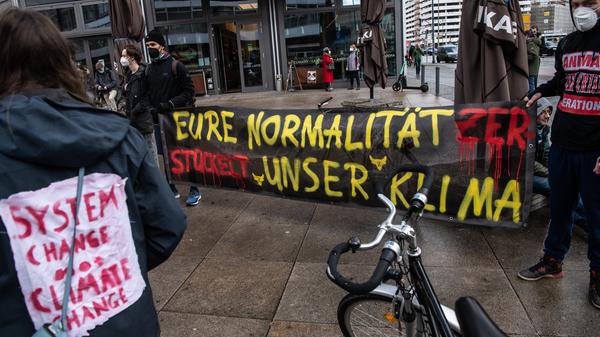 EURE NORMALITÄT ZER
STÜCKELT UNSER KLIMA
SYSTEM
CHANGE
CLIMATE
CHANGE
ERATION